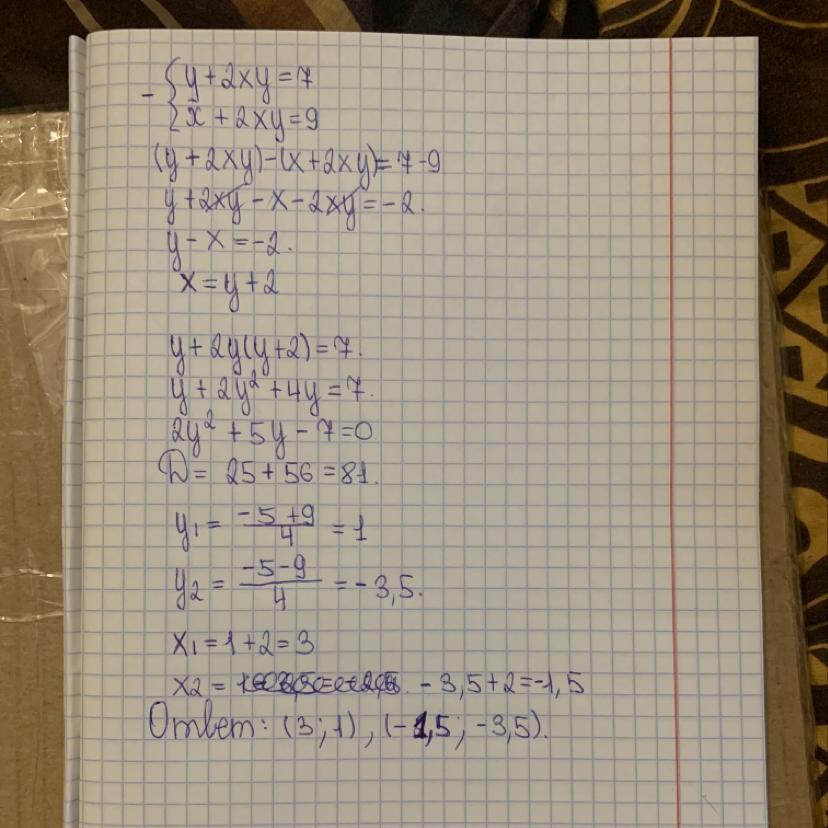 - { y + 2xy = 7
{ x + 2xy = 9
(y + 2xy) - (x + 2xy) = 7 - 9
y + 2xy - x - 2xy = -2.
y - x = -2.
x = y + 2
y + 2y(y + 2) = 7.
y + 2y² + 4y = 7.
2y² + 5y - 7 = 0
D = 25 + 56 = 81.
y₁ = (-5 + 9)/4 = 1
y₂ = (-5 - 9)/4 = -3,5.
x₁ = 1 + 2 = 3
x₂ = -3,5 + 2 = -1,5
Ответ: (3; 1), (-1,5; -3,5).